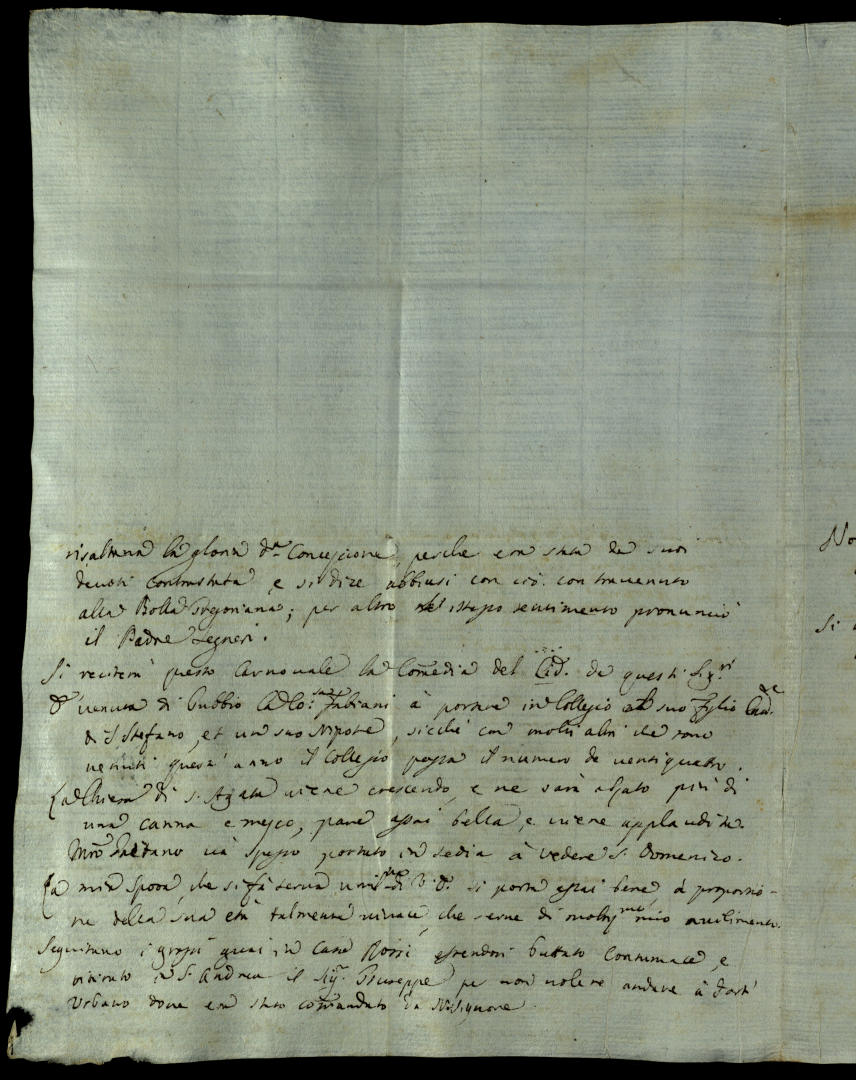 risalterà la gloria d.ª Concezione, perche era stata da suoi
devoti contrastata, e si dice abbiasi con ciò contravenuto
alla Bolla Gregoriana; per altro nel istesso sentimento pronunciò
il Padre Segneri.
Si reciterà questo Carnovale la Comedia del Cid. da questi Sig.ri
È venuta di Gubbio Fabiani à portare in Collegio il suo figlio
di S. Stefano, et un suo Nipote, sicché con molti altri che sono
venuti quest'anno il Collegio passa il numero de ventiquattro.
La Chiesa di S. Agata viene crescendo, e ne sarà alzato più di
una canna e mezzo, pare assai bella, e viene applaudita.
Gaetano và spesso portato in sedia à vedere S. Domenico.
La mia sposa, che si fà serva di V. S. si porta assai bene à proporzio-
ne della sua età talmente vivace, che serve di mio avilimento.
Seguitano i grossi guai in Casa Rossi, essendosi buttato Contumace, e
ritirato in S. Andrea il Sig.r Giuseppe per non volere andare à Fort'
Urbano dove era stato comandato da N. Signore.
No
Si